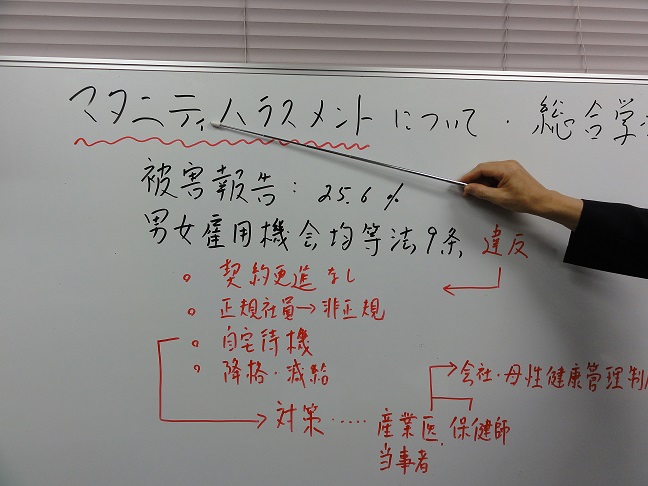 マタニティハラスメントについて・総合学
被害報告：25.6%
男女雇用機会均等法9条 違反
。契約更進なし
。正規社員→非正規
。自宅待機
。降格・減給
会社・母性健康管理制
対策‥‥産業医、保健師
当事者